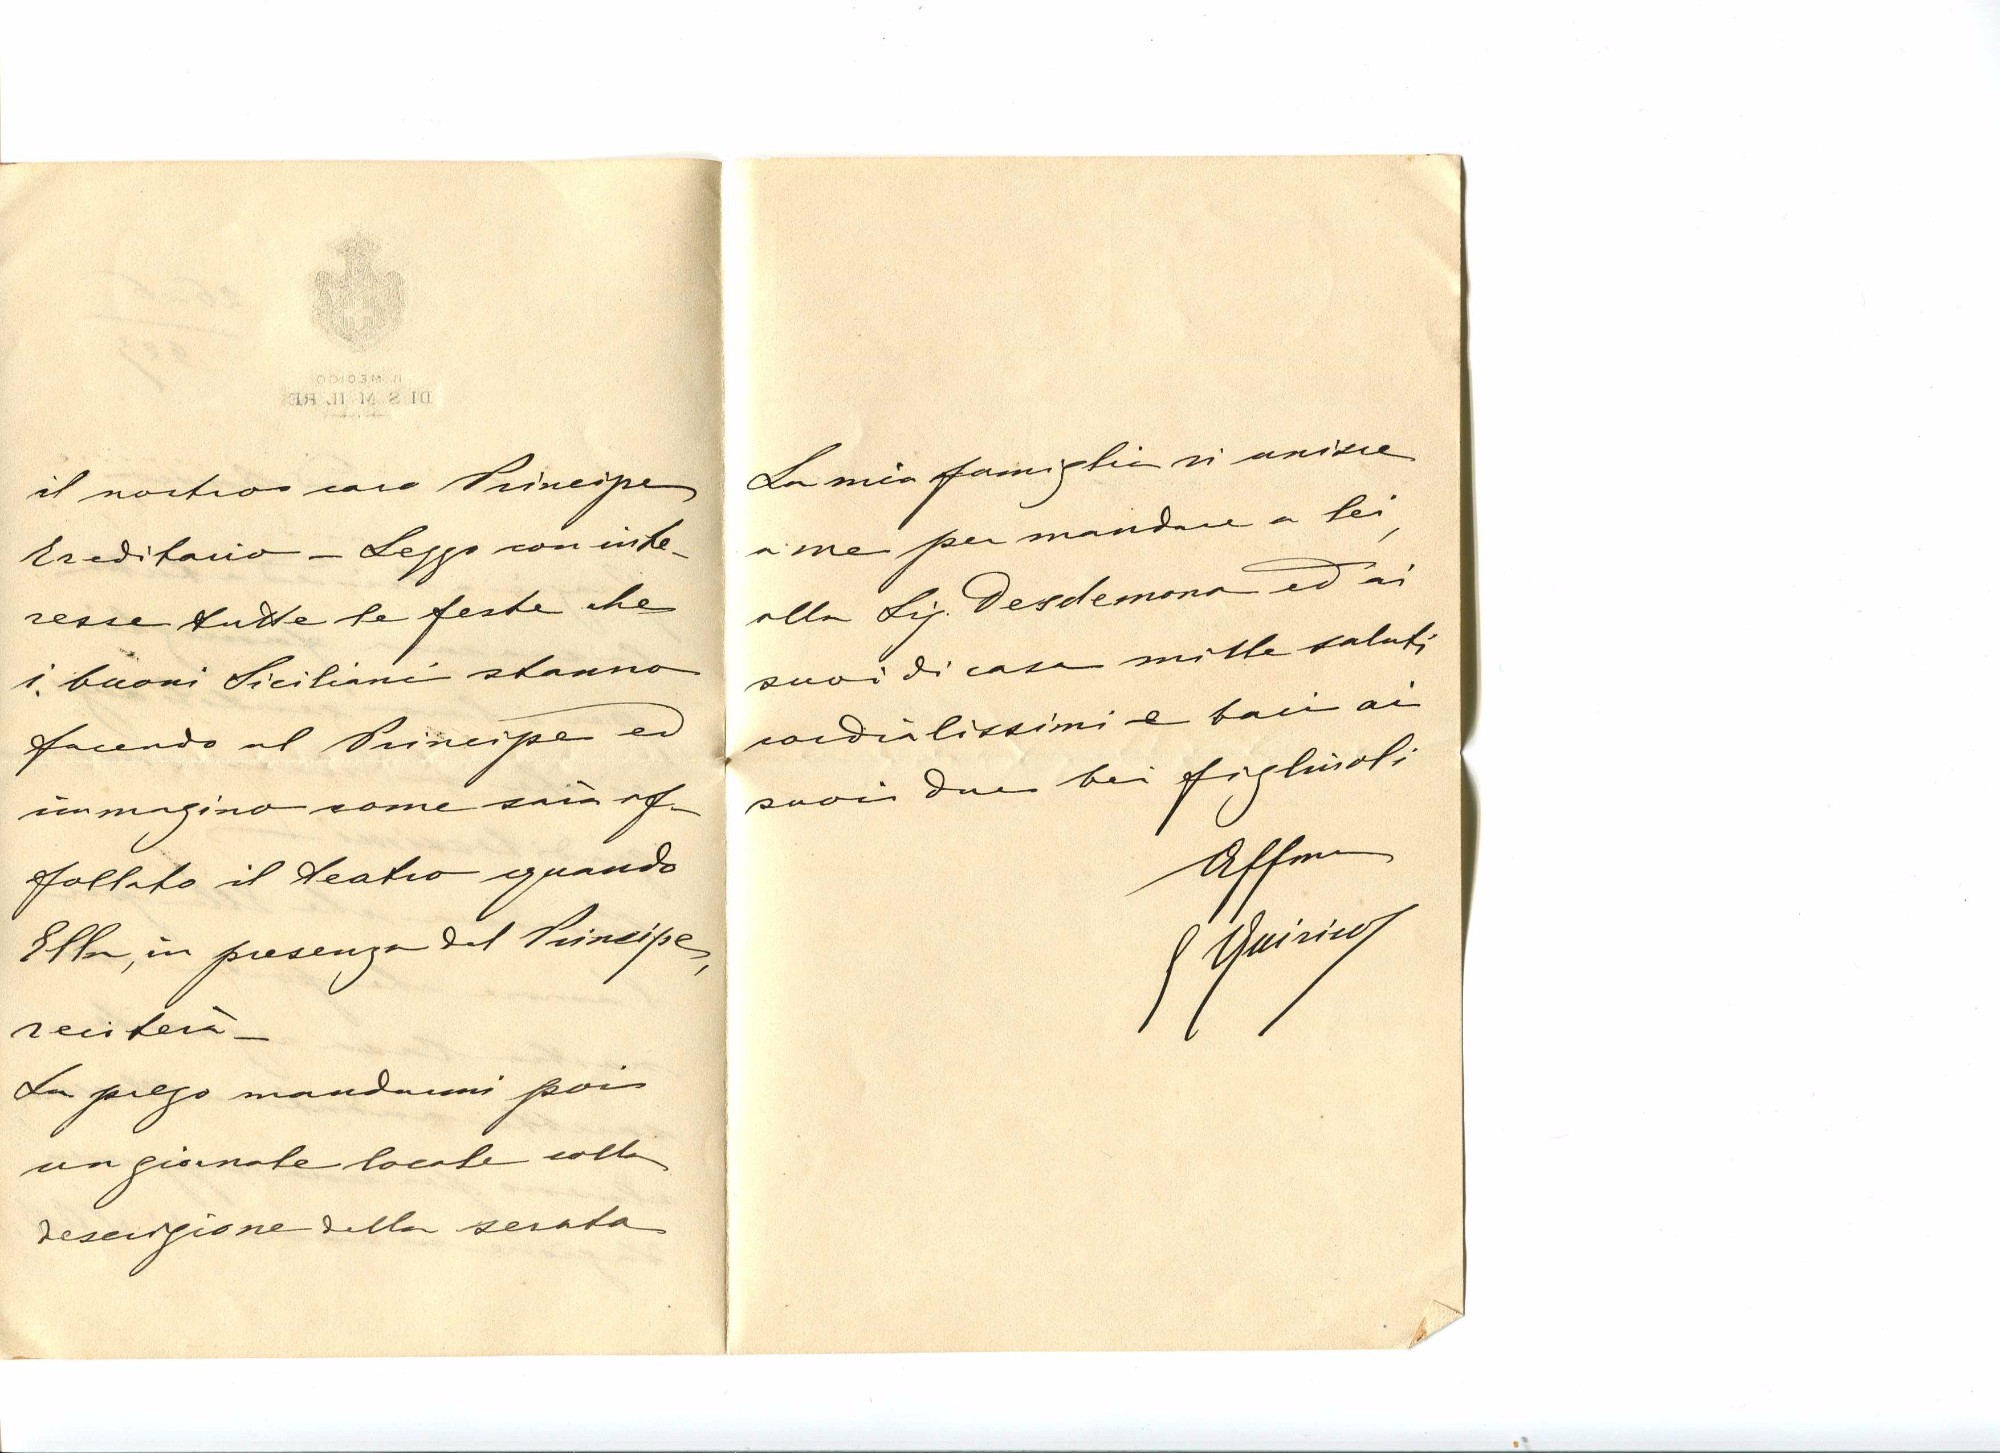 il nostro caro Principe
Ereditario – Leggo con inte-
resse tutte le feste che
i buoni Siciliani stanno
facendo al Principe ed
immagino come sarà af-
follato il teatro quando
Ella, in presenza del Principe,
reciterà –
La prego mandarmi poi
un giornale locale colla
descrizione della serata
La mia famiglia si unisce
a me per mandare a lei,
alla Sig. Desdemona ed ai
suoi di casa mille saluti
cordialissimi e baci ai
suoi due bei figliuoli
Affmo
G Quirico
IL MEDICO
DI S. M. IL RE